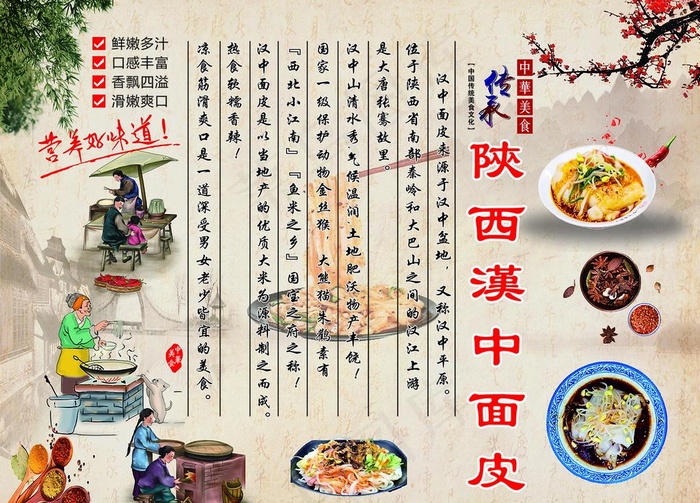 中華美食
传承
【中国传统美食文化】
陝西漢中面皮
汉中面皮来源于汉中盆地，又称汉中平原。
位于陕西省南部秦岭和大巴山之间的汉江上游
是大唐张骞故里。
汉中山清水秀气候温润土地肥沃物产丰饶！
国家一级保护动物金丝猴，大熊猫朱鹮素有
『西北小江南』『鱼米之乡』国宝之府之称！
汉中面皮是以当地产的优质大米为源料制之而成。
热食软糯香辣！
凉食筋滑爽口是一道深受男女老少皆宜的美食。
鲜嫩多汁
口感丰富
香飘四溢
滑嫩爽口
营养好味道！
中華美食